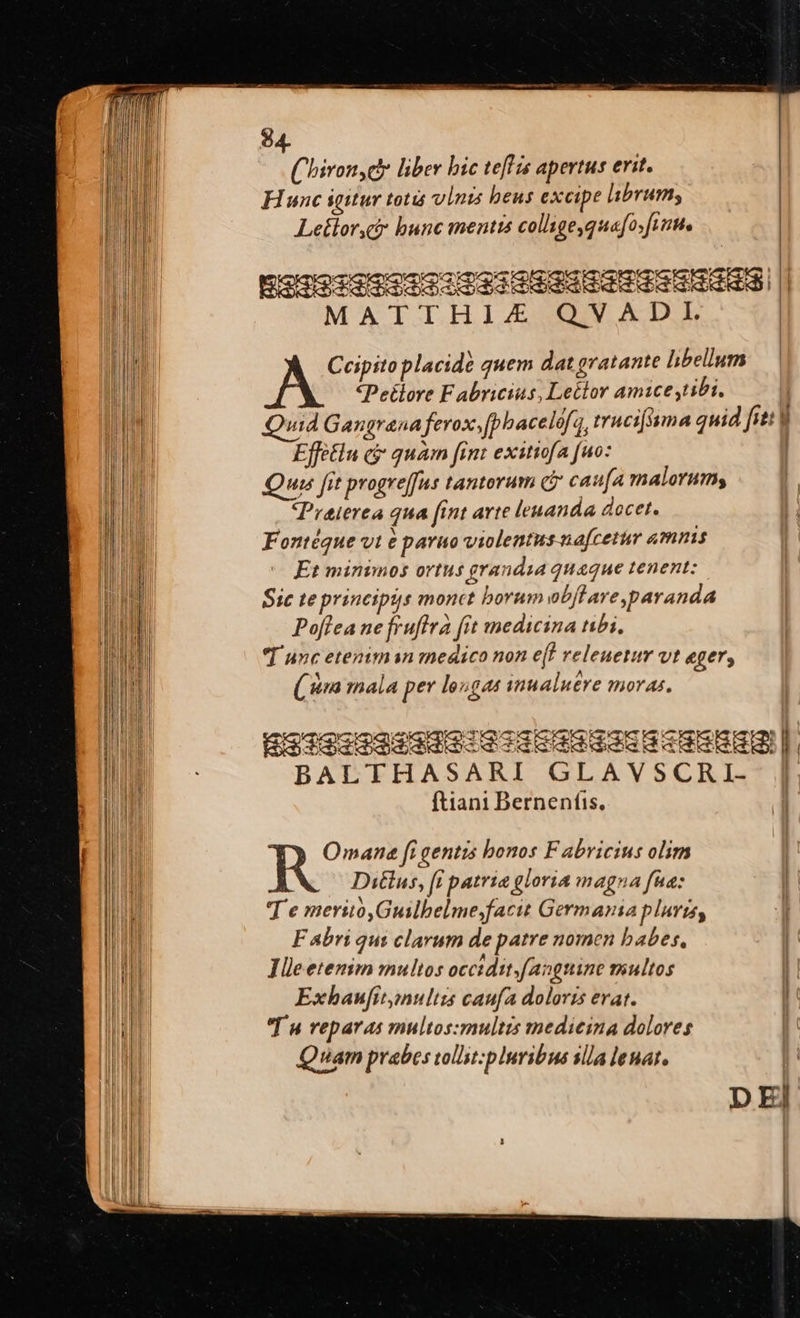 84
Chiron,& liber hic teſtis apertus erit.
Hunc igitur totis vlnis heus excipe librum,
Lector,& hunc mentis collige,quæſo,ſinu.
MATTHIÆ QVADI.
ACcipito placidè quem dat gratante libellum
Pectore Fabricius, Lector amice,tibi.
Quid Gangræna ferox,ſphaceloſq́, truciſsima quid ſit:
Effectu & quàm ſint exitioſa ſuo:
Quis ſit progreſſus tantorum & cauſa malorum,
Præterea qua ſint arte leuanda docet.
Fontéque vt è paruo violentus naſcetur amnis
Et minimos ortus grandia quæque tenent:
Sic te principijs monet horum obſtare,paranda
Poſtea ne fruſtrà ſit medicina tibi.
Tunc etenim in medico non eſt releuetur vt æger,
Cùm mala per longas inualuêre moras.
BALTHASARI GLAVSCRI-
ſtiani Bernenſis.
ROmanæ ſi gentis honos Fabricius olim
Dictus, ſi patriæ gloria magna ſuæ:
Te meritò,Guilhelme,facit Germania pluris,
Fabri qui clarum de patre nomen habes.
Ille etenim multos occidit,ſanguine multos
Exhauſit,multis cauſa doloris erat.
Tu reparas multos:multis medicina dolores
Quam præbes tollit:pluribus illa leuat.
DE